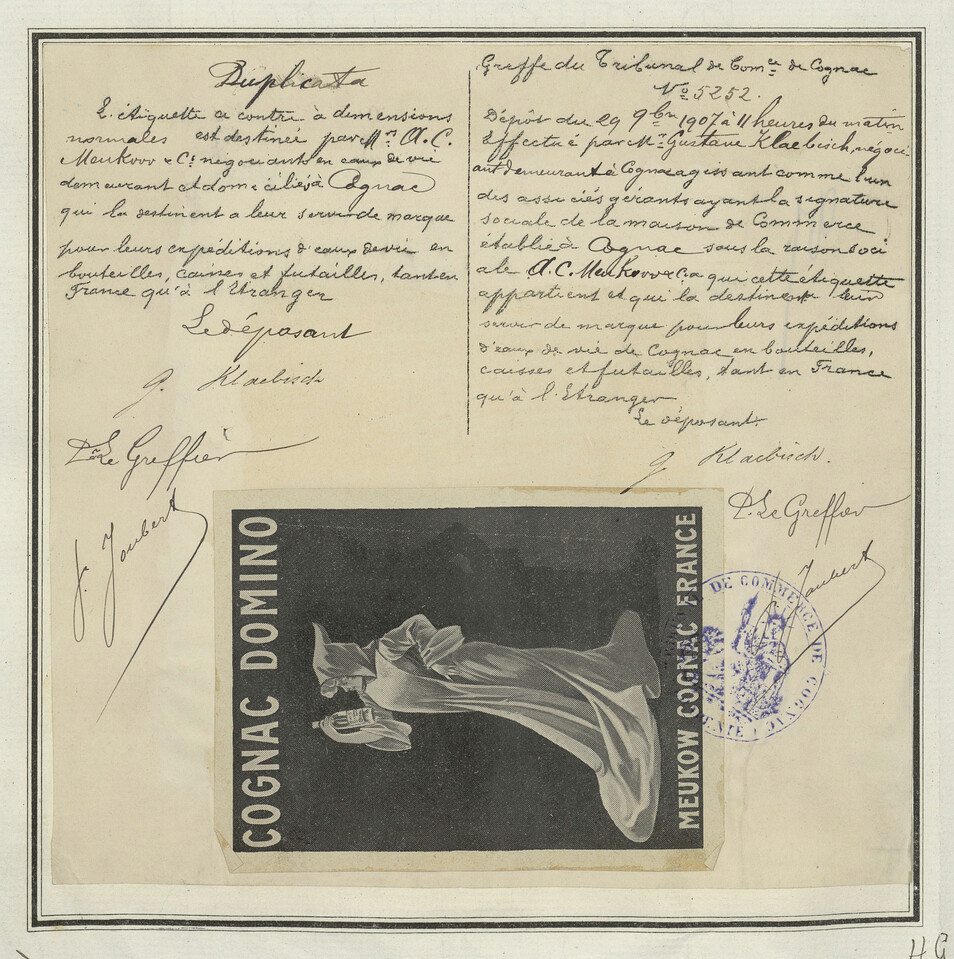 Duplicata
L'étiquette ci contre à dimensions
normales est destinée par Mrs A. C.
Meukow & Ce négociants en eaux de vie
demeurant et domiciliés à Cognac
qui la destinent a leur servir de marque
pour leurs expéditions d'eaux de vie en
bouteilles, caisses et futailles, tant en
France qu'à l'Etranger
Le déposant
G. Klaebisch
Pr Le Greffier
J. Joubert
Greffe du Tribunal de Comce de Cognac
No 5252.
Dépôt du 29 9bre 1907 à 11 heures du matin
Effectué par Mr Gustave Klaebisch, négoci
ant demeurant à Cognac agissant comme l'un
des associés gérants ayant la signature
sociale de la maison de Commerce
établie à Cognac sous la raison soci
ale A. C. Meukow & Ca qui cette étiquette
appartient et qui la destinent leur
servir de marque pour leurs expéditions
d'eaux de vie de Cognac en bouteilles,
caisses et futailles, tant en France
qu'à l'Etranger
Le déposant.
G Klaebisch.
P. Le Greffier
Joubert
COGNAC DOMINO
MEUKOW COGNAC FRANCE
DE COMMERCE DE COGNAC